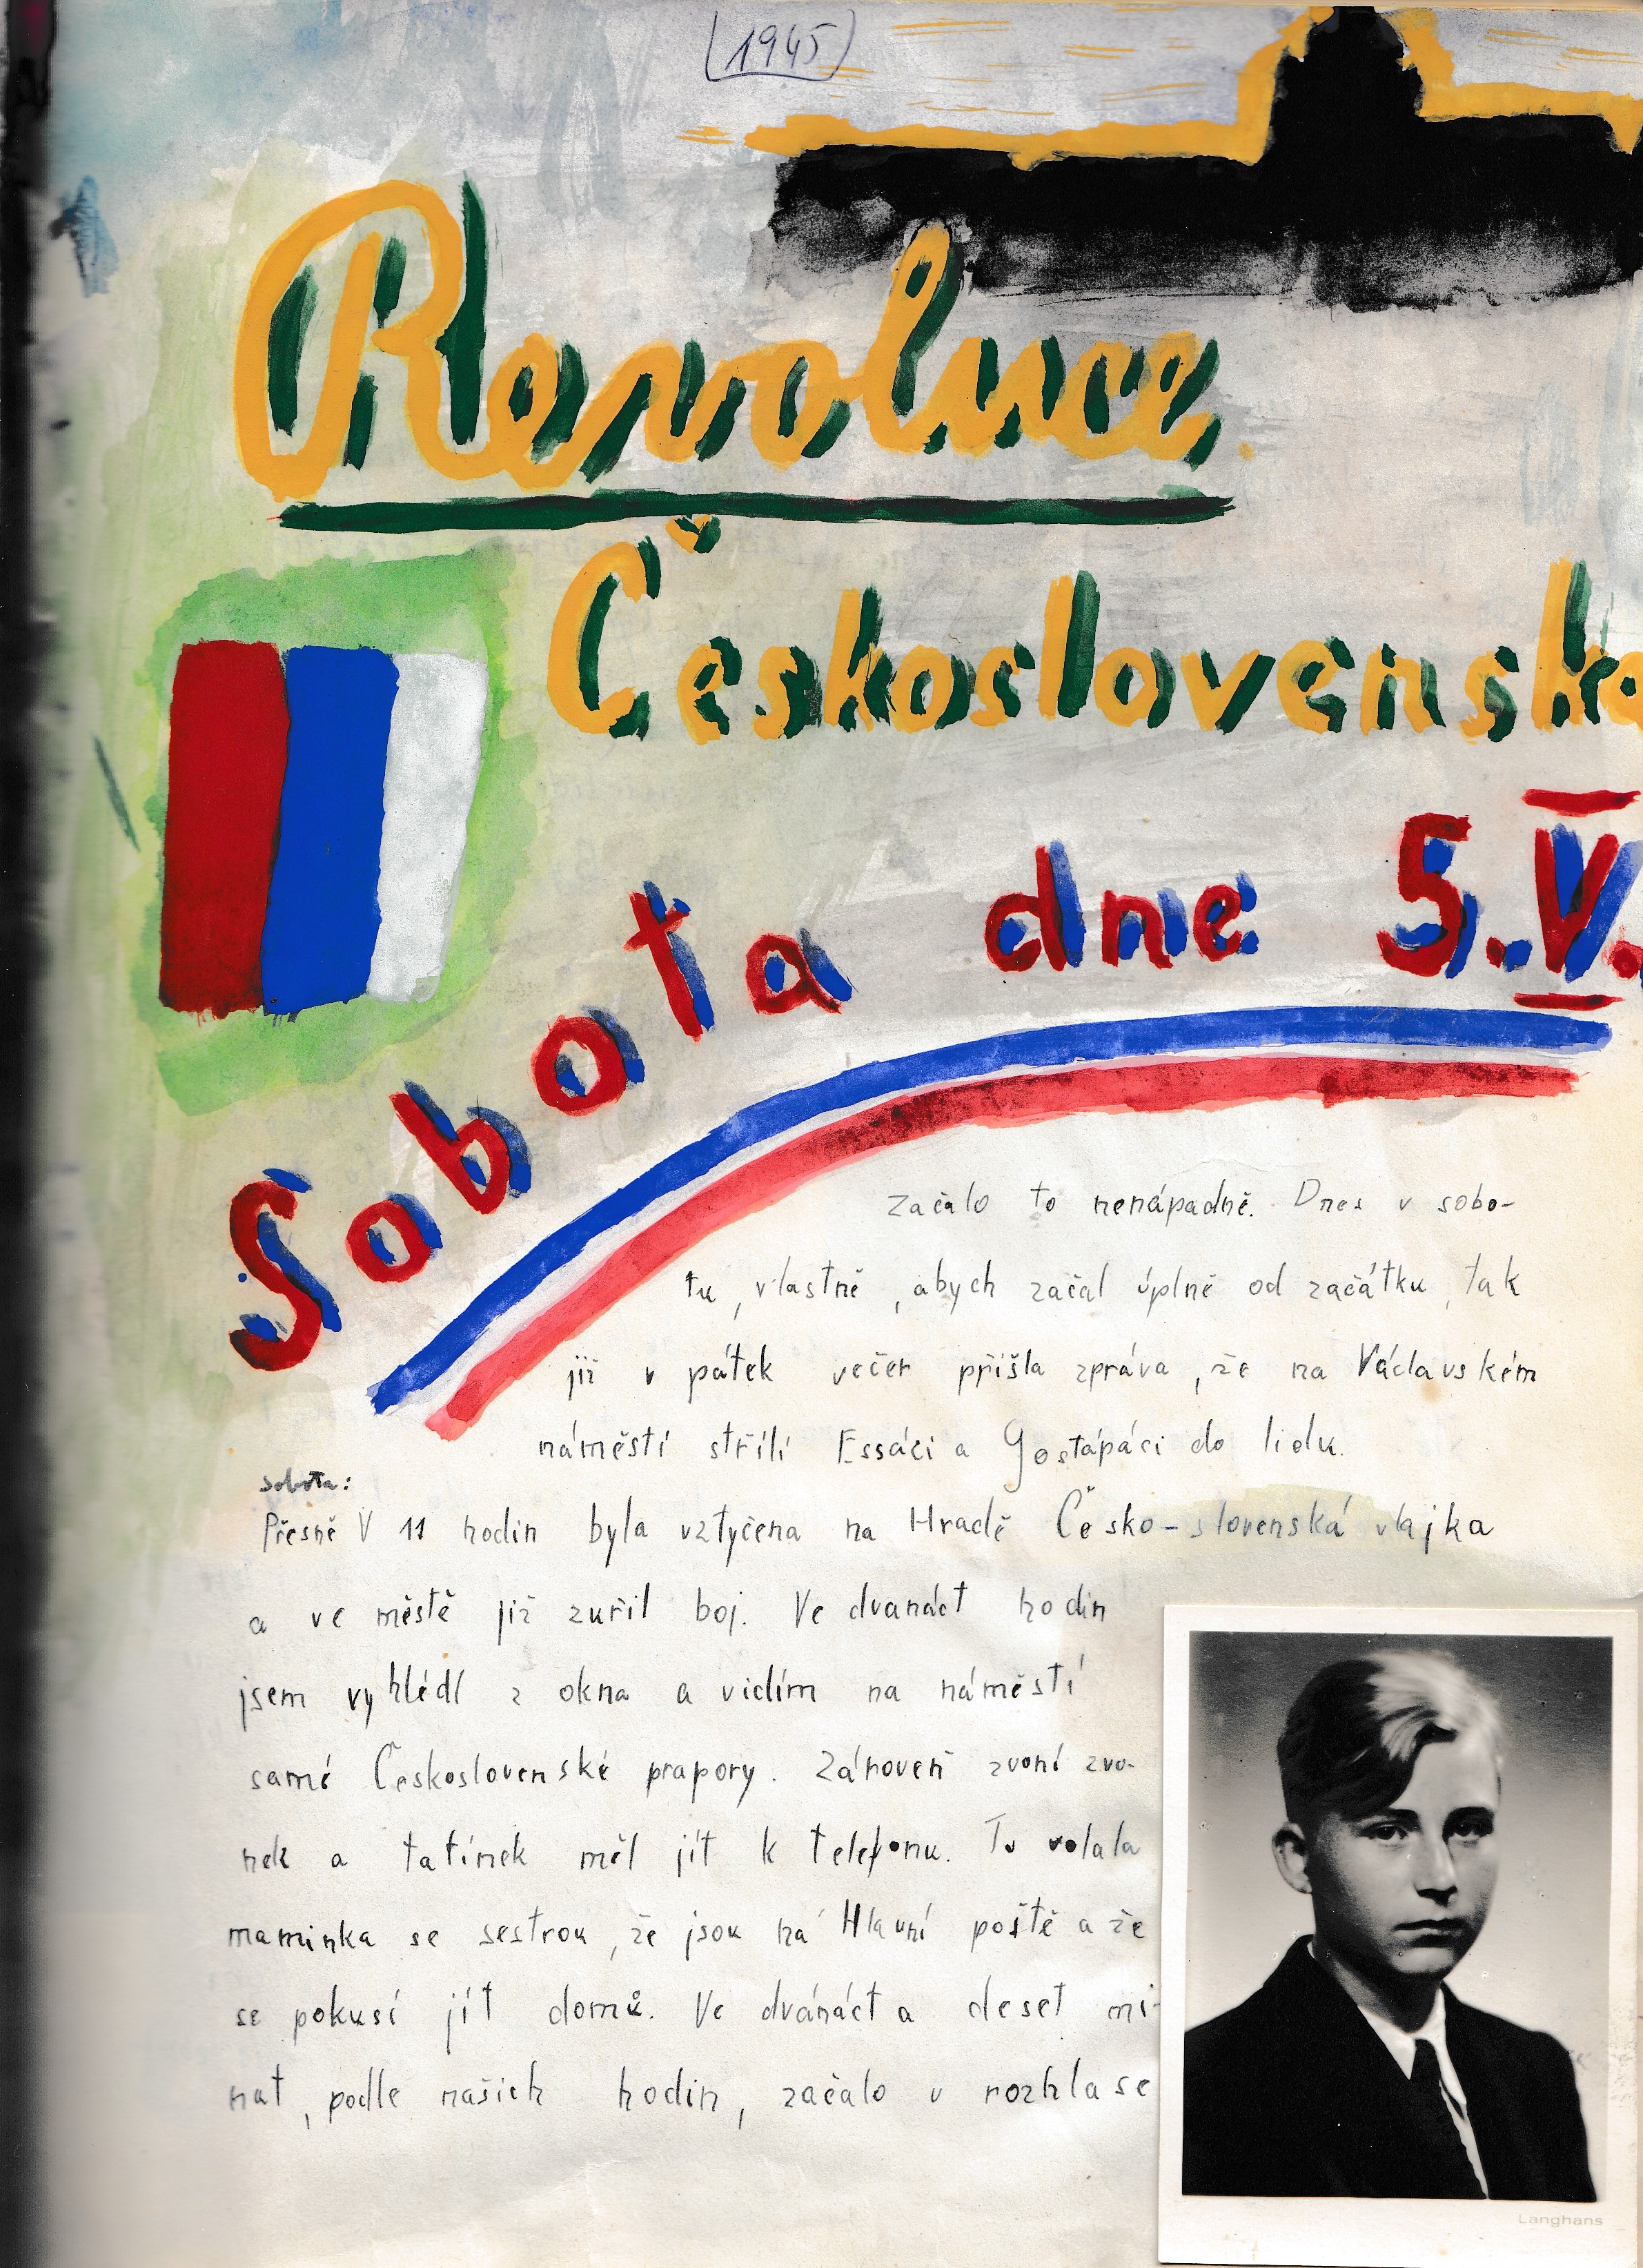 (1945)
Revoluce
Československo
Sobota dne 5.V.
Začalo to nenápadně. Dnes v sobo-
tu, vlastně, abych začal úplně od začátku, tak
již v pátek večer přišla zpráva, že na Václavském
náměstí střílí Essáci a Gestápáci do lidu.
sobota:
Přesně V 11 hodin byla vztyčena na Hradě Česko-slovenská vlajka
a ve městě již zuřil boj. Ve dvanáct hodin
jsem vyhlédl z okna a vidím na náměstí
samé Československé prapory. Zároveň zvoní zvo-
nek a tatínek měl jít k telefonu. Tu volala
maminka se sestrou, že jsou na Hlavní poště a že
se pokusí jít domů. Ve dvánáct a deset mi-
nut, podle našich hodin, začalo v rozhlase
Langhans